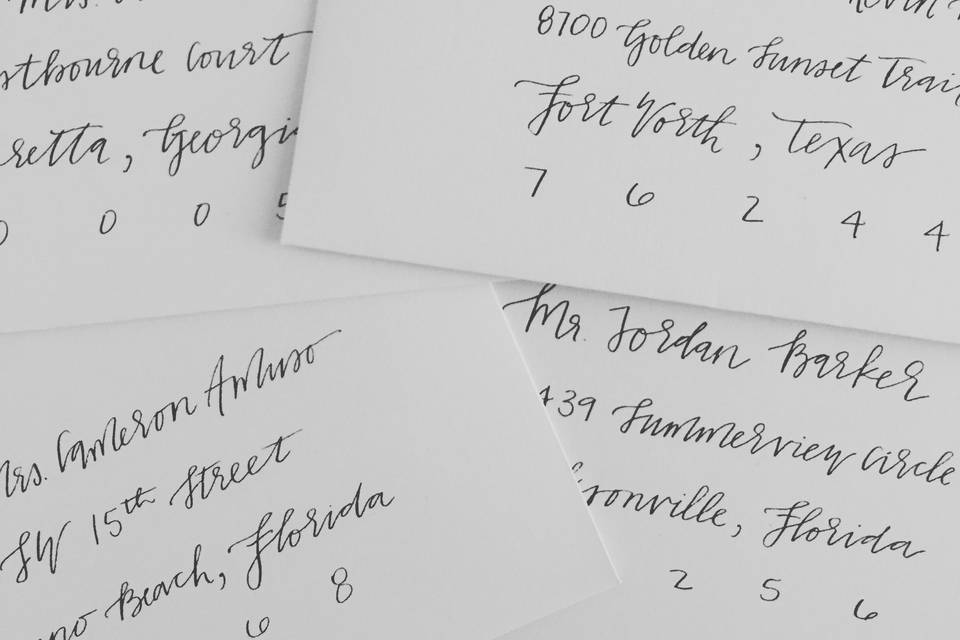 Mrs.
stbourne Court
retta, Georgi
0 0 0 5
Kevin
8700 Golden Sunset Trail
Fort Worth, Texas
7 6 2 4 4
Mrs. Cameron
SW 15th Street
uno Beach, Florida
6 8
Mr. Jordan Barker
439 Summerview Circle
sonville, Florida
2 5 6